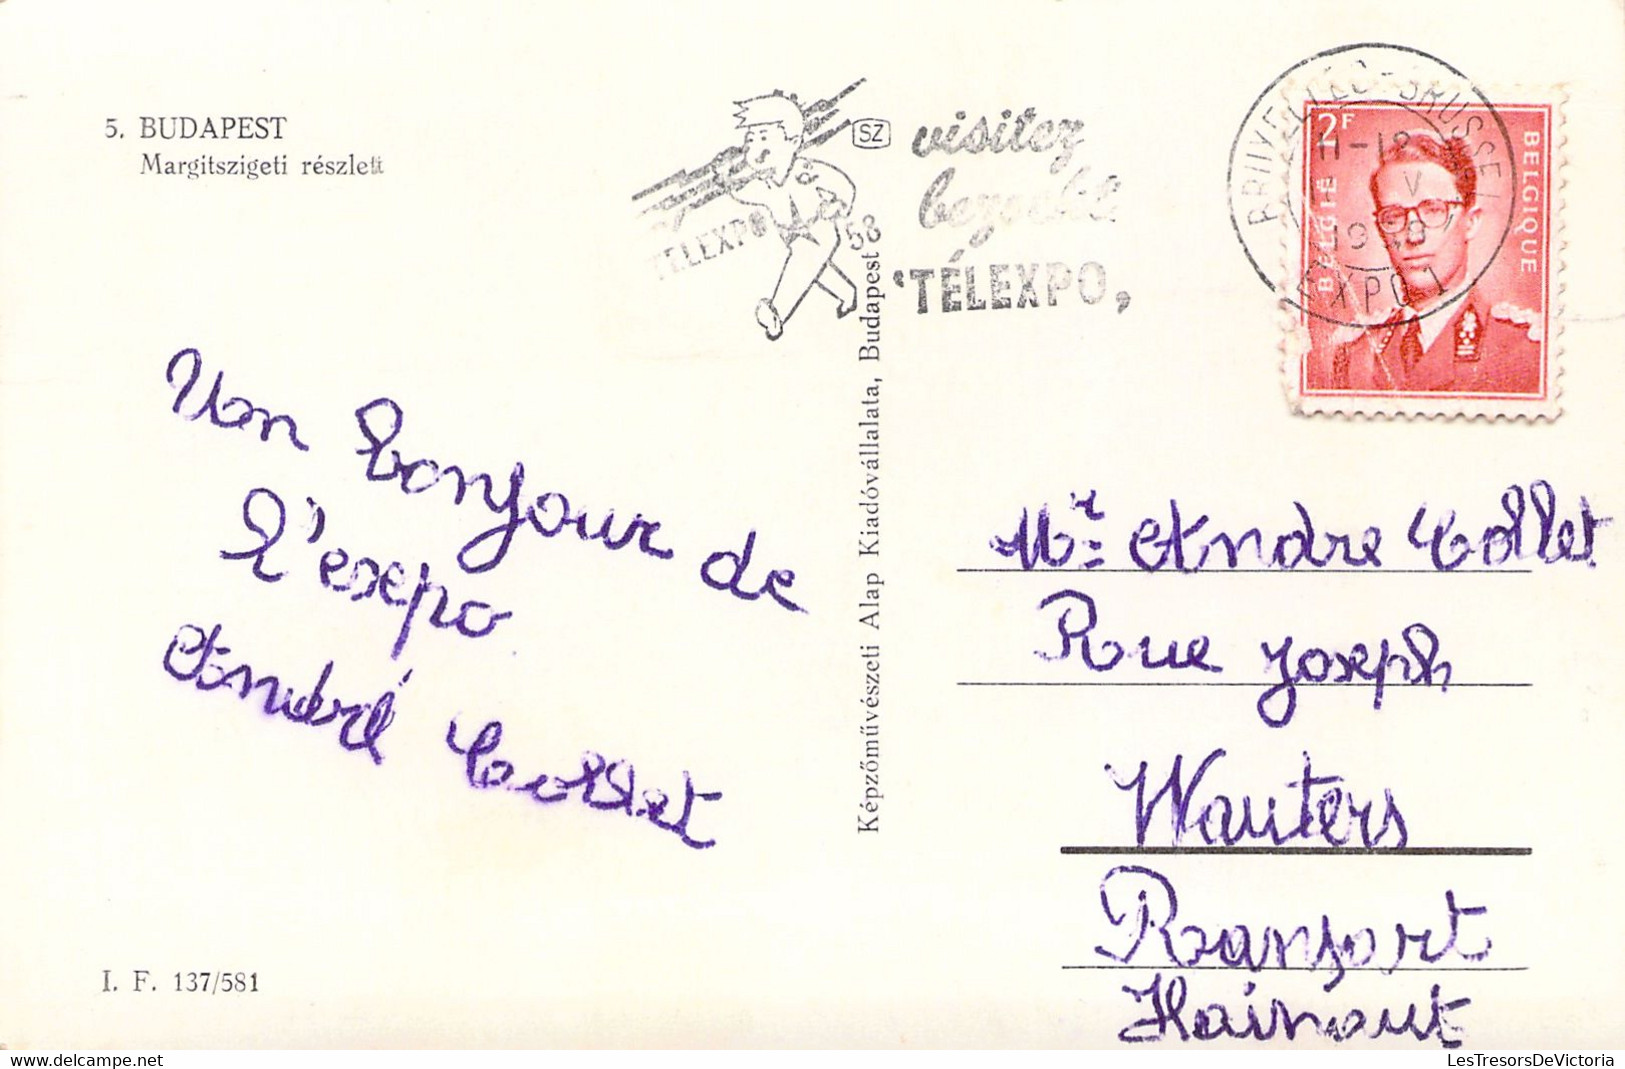 5. BUDAPEST
Margitszigeti részlett
TELEXPO 58
SZ
visitez
bezoekt
'TÉLEXPO,
BRUXELLES-BRUSSEL
11-12
V
1958
EXPO 1
2F
BELGIË
BELGIQUE
Von bonjour de
l'exepo
André Collet
Képzőművészeti Alap Kiadóvállalata, Budapest
Mr Andre Collet
Rue joseph
Wauters
Ransart
Hainaut
I. F. 137/581
LesTresorsDeVictoria